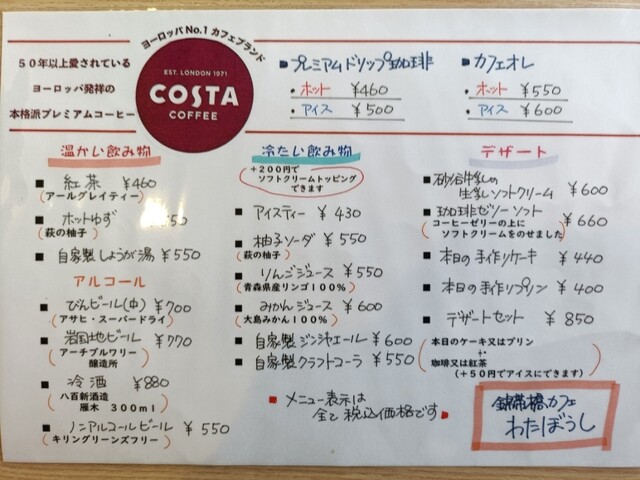 ヨーロッパNo.1カフェブランド
50年以上愛されている
ヨーロッパ発祥の
本格派プレミアムコーヒー
EST. LONDON 1971
COSTA
COFFEE
■ プレミアムドリップ珈琲
・ホット ¥460
・アイス ¥500
■ カフェオレ
・ホット ¥550
・アイス ¥600
温かい飲み物
■ 紅茶 ¥460
(アールグレイティー)
■ ホットゆず 50
(萩の柚子)
■ 自家製しょうが湯 ¥550
アルコール
■ びんビール(中) ¥700
(アサヒ・スーパードライ)
■ 岩国地ビール ¥770
(アーチブルワリー
醸造所)
■ 冷酒 ¥880
(八百新酒造
雁木 300ml)
■ ノンアルコールビール ¥550
(キリングリーンズフリー)
冷たい飲み物
+200円で
ソフトクリームトッピング
できます
■ アイスティー ¥430
■ 柚子ソーダ ¥550
(萩の柚子)
■ りんごジュース ¥550
(青森県産リンゴ100%)
■ みかんジュース ¥600
(大島みかん100%)
■ 自家製ジンジャエール ¥600
■ 自家製クラフトコーラ ¥550
■ メニュー表示は
全て税込価格です ■
デザート
■ 砂谷牛乳の
生乳ソフトクリーム ¥600
■ 珈琲ゼリーソフト ¥660
(コーヒーゼリーの上に
ソフトクリームをのせました)
■ 本日の手作りケーキ ¥440
■ 本日の手作りプリン ¥400
■ デザートセット ¥850
(本日のケーキ又はプリン
+
珈琲又は紅茶
(+50円でアイスにできます))
錦帯橋カフェ
わたぼうし